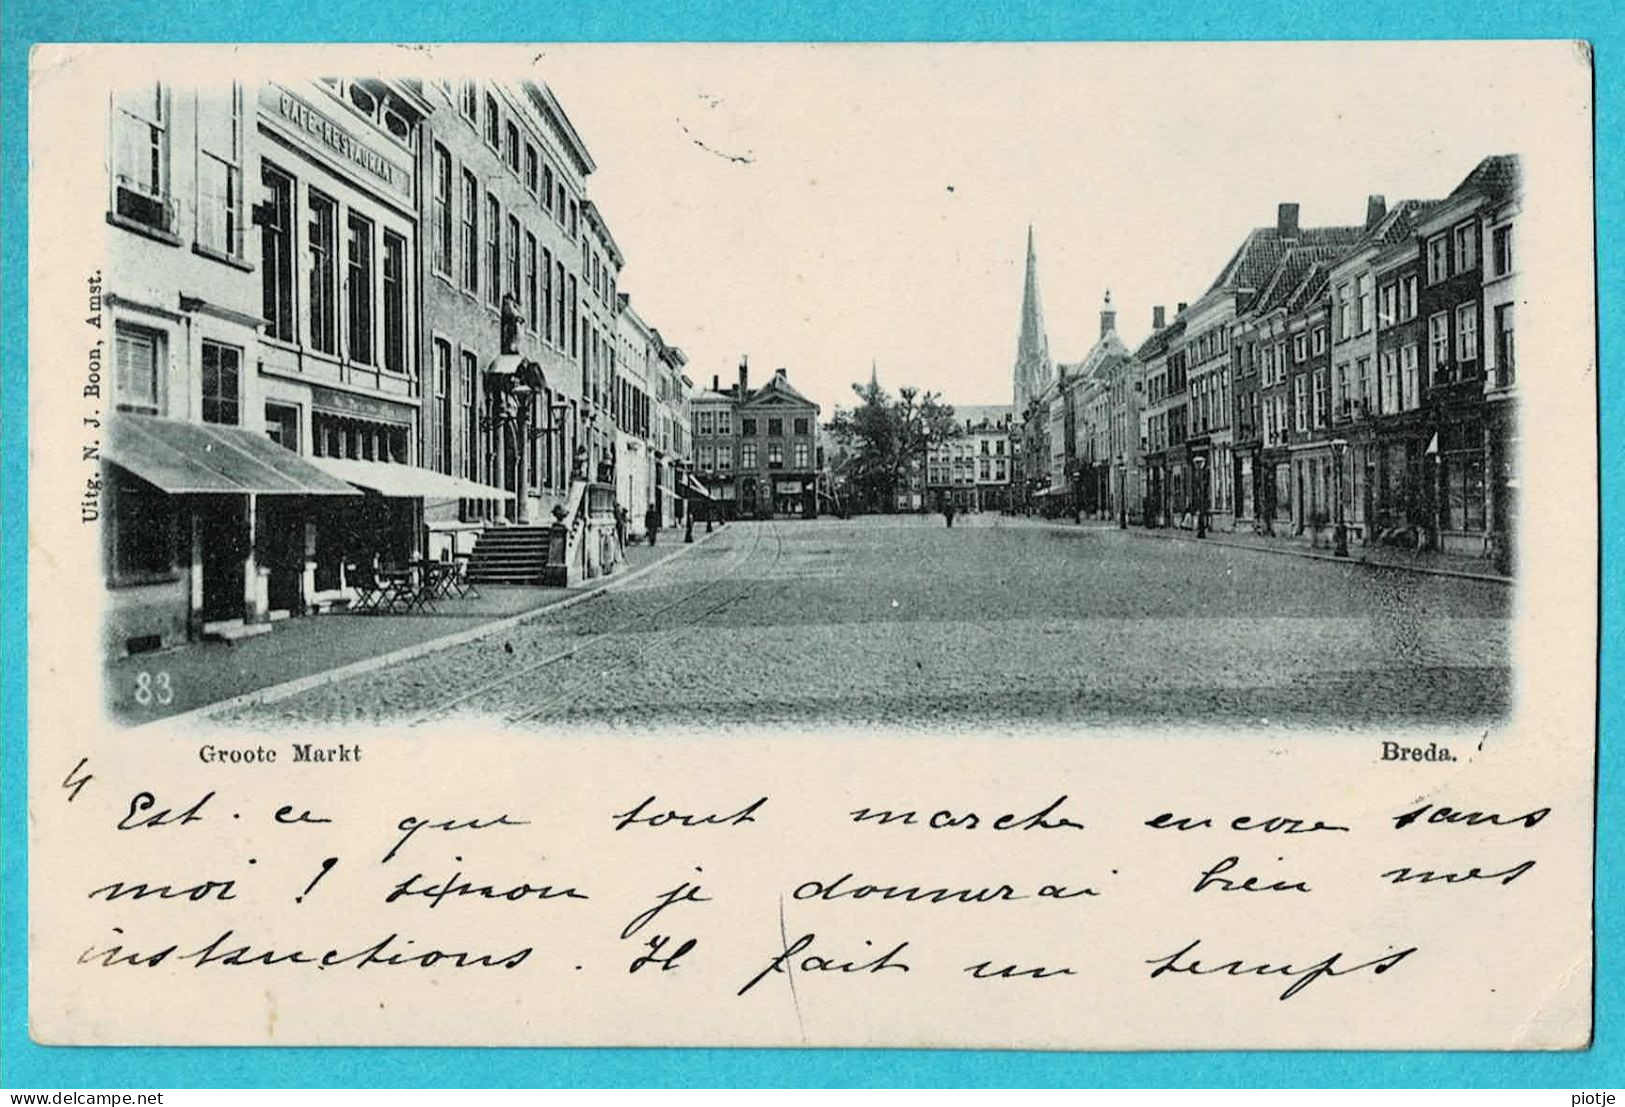 CAFE-RESTAURANT
Uitg. N. J. Boon, Amst.
83
Groote Markt
Breda.
4
Est-ce que tout marche encore sans
moi ? sinon je donnerai bien mes
instructions. Il fait un temps
delcampe.net
piotje